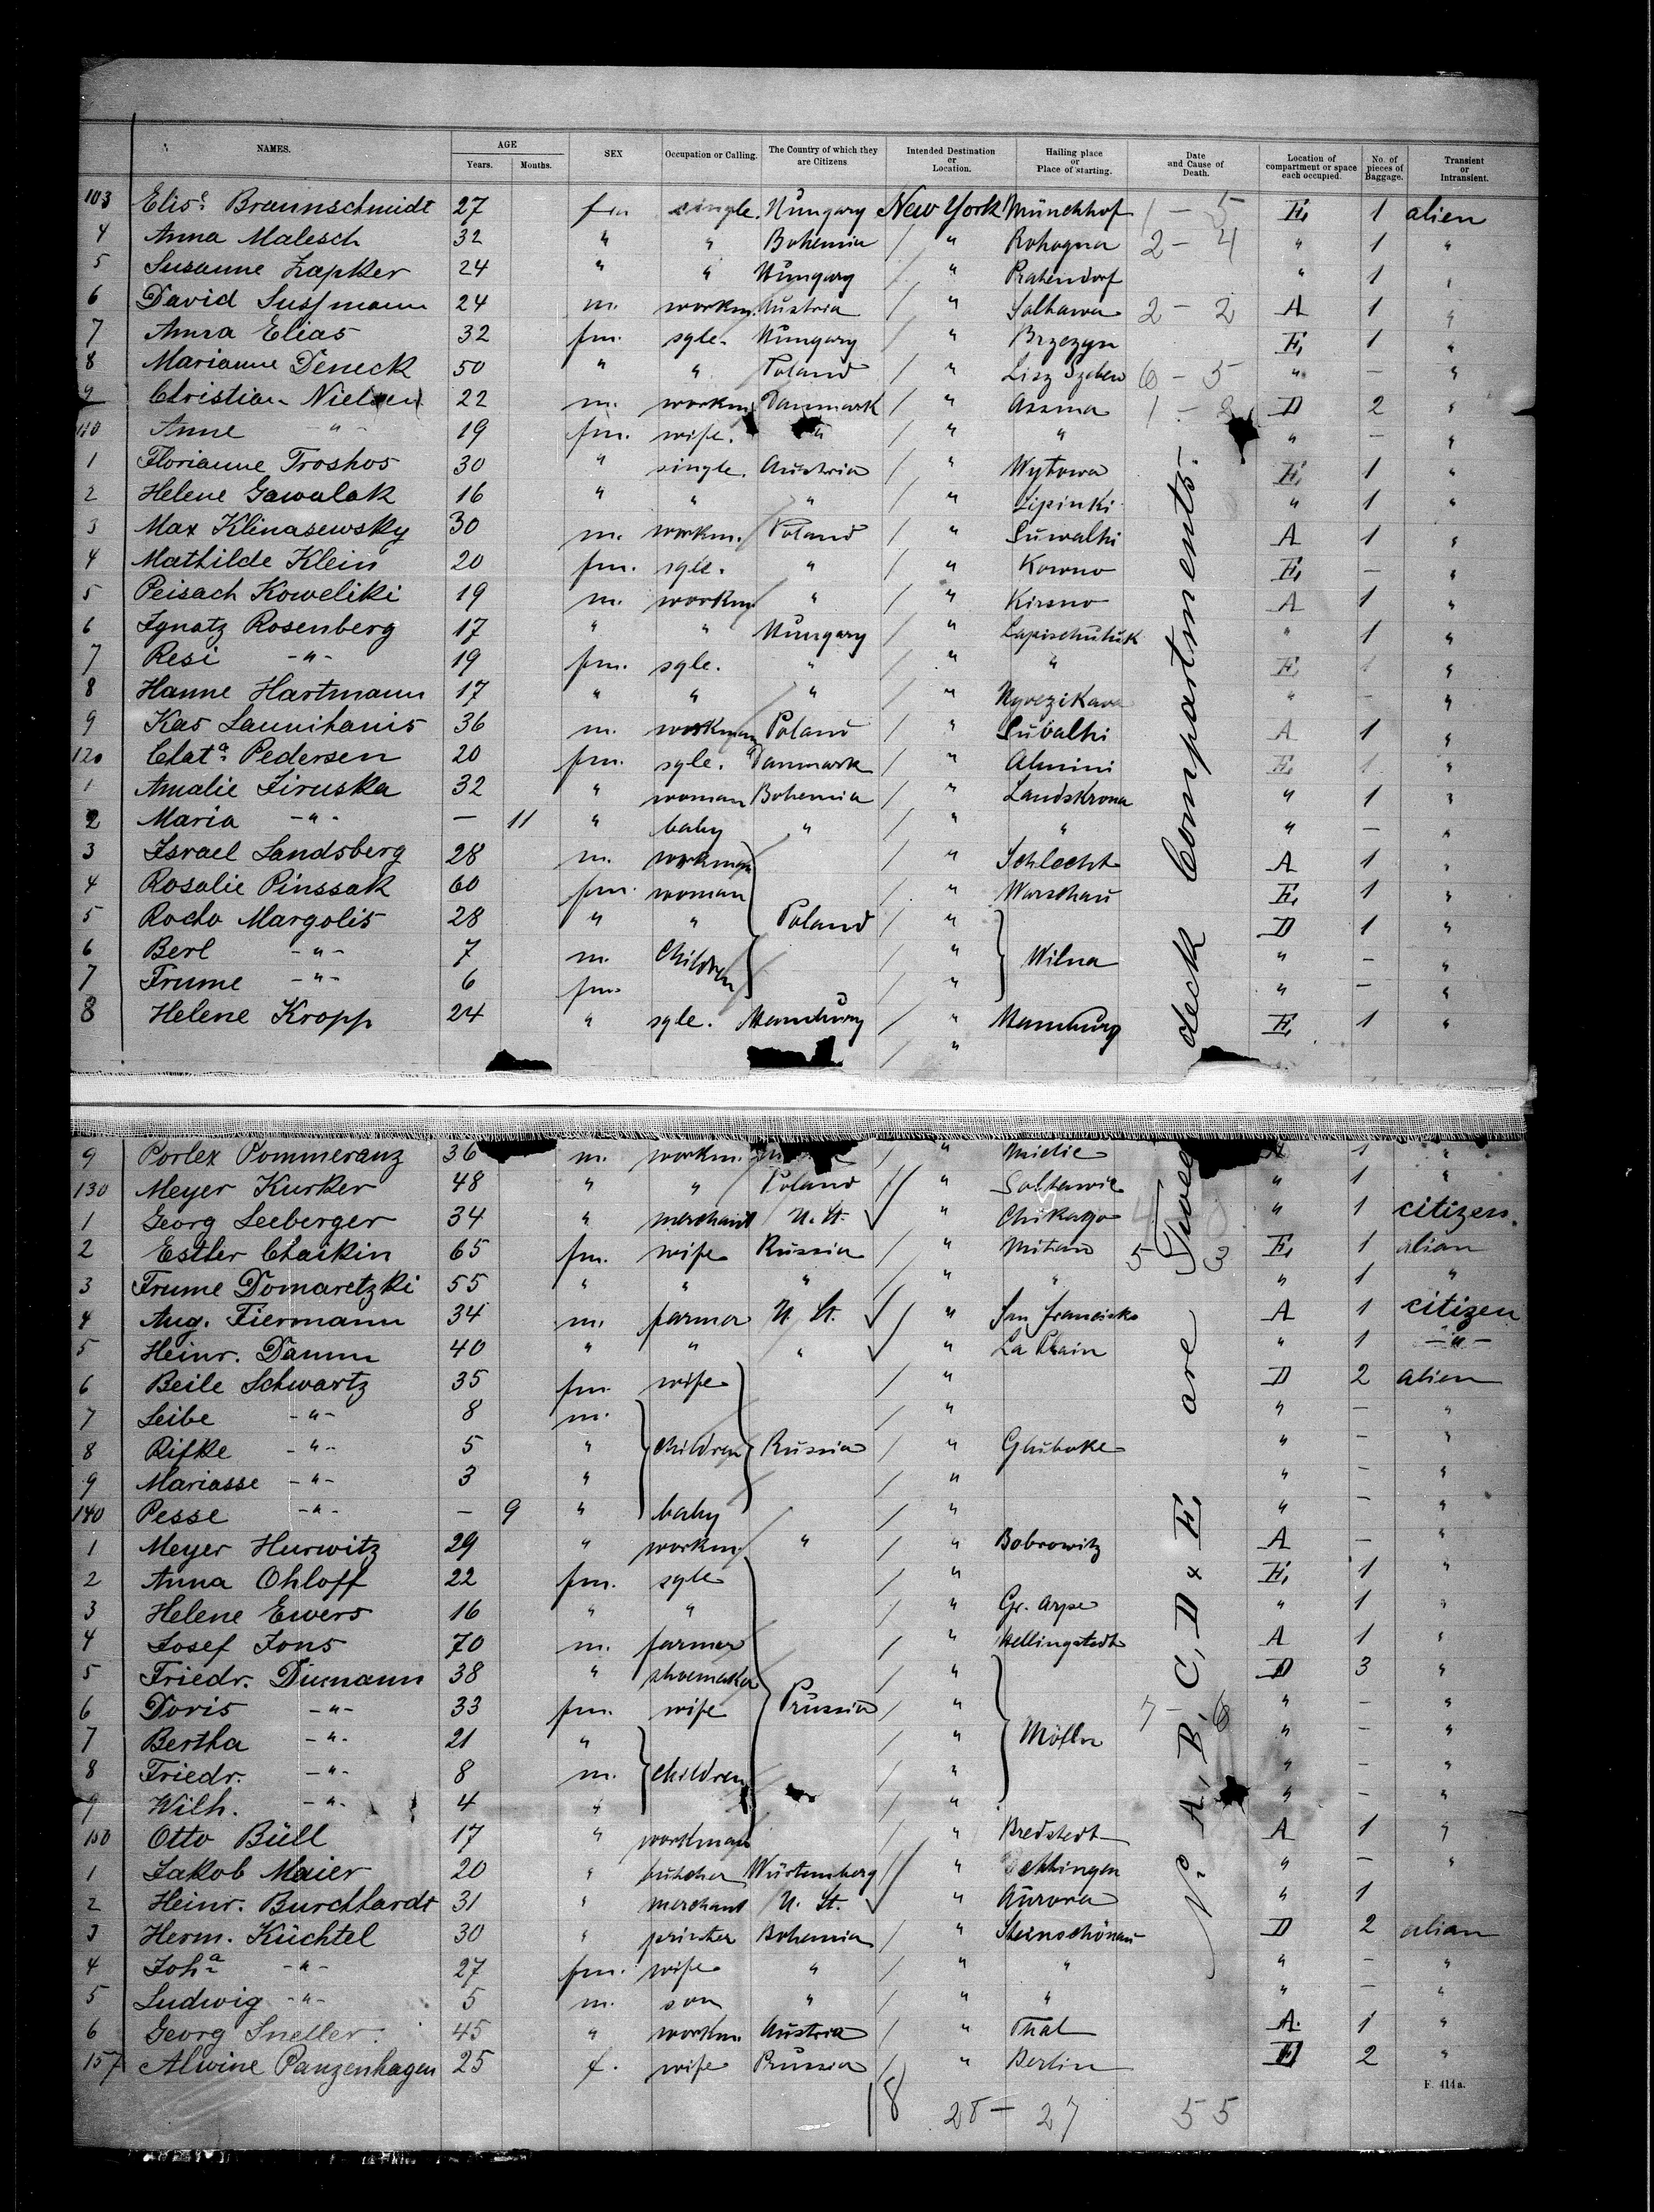 NAMES. AGE Years. Months. SEX Occupation or Calling. The Country of which they are Citizens. Intended Destination or Location. Hailing place or Place of starting. Date and Cause of Death. Location of compartment or space each occupied. No. of pieces of Baggage. Transient or Intransient.
103 Elise Braunschmidt 27 fm single. Hungary New York Münchhof 1 - 5 E, 1 alien
4 Anna Malesch 32 " " Bohemia / " Rohogna 2 - 4 " 1 "
5 Susanne Zapker 24 " " Hungary / " Pratendorf " 1 "
6 David Sussmann 24 m. workm. Austria / " Solkawa 2 - 2 A 1 "
7 Anna Elias 32 fm. sgle. Hungary / " Brzezyn E, 1 "
8 Marianne Deneck 50 " " Poland / " Lisz Szeben 6 - 5 " — "
9 Christian Nielsen 22 m. workm. Danmark / " Assma 1 - D 2 "
110 Anne -"- 19 fm. wife. " / " " " — "
1 Florianne Troshos 30 " single. Austria / " Wytowa E, 1 "
2 Helene Gawalak 16 " " " / " Lipinki " 1 "
3 Max Klinasewsky 30 m. workm. Poland / " Suwalki A 1 "
4 Mathilde Klein 20 fm. sgle. " / " Kowno E, — "
5 Peisach Koweliki 19 m. workm. " / " Kirsno A 1 "
6 Ignatz Rosenberg 17 " " Hungary / " Lapischutuk " 1 "
7 Resi -"- 19 fm. sgle. " / " " E, 1 "
8 Hanne Hartmann 17 " " " / " Nyrezikava " - "
9 Kas Launihanis 36 m. workman Poland / " Subalki A 1 "
120 Chata Pedersen 20 fm. sgle. Danmark / " Almini E, 1 "
1 Amalie Ziruska 32 " woman Bohemia / " Landskrona " 1 "
2 Maria -"- — 11 " baby " / " " " — "
3 Israel Landsberg 28 m. workman / " Schlecht A 1 "
4 Rosalie Pinssak 60 fm. woman / " Warschau E, 1 "
5 Rocho Margolis 28 " " Poland / " D 1 "
6 Berl -"- 7 m. Children " Wilna " — "
7 Frume -"- 6 fm. / " " — "
8 Helene Kropp 24 " sgle. Hamburg / " Hamburg E, 1 "
/ "
9 Porlex Pommeranz 36 m. workm. / " Mielic 1 "
130 Meyer Kurker 48 " " Poland / " Soltawic " 1 "
1 Georg Leeberger 34 " merchant U. St. " Chikago " 1 citizen.
2 Esther Chaikin 65 fm. wife Russia / " Mitau 5 3 E, 1 alian
3 Frume Domaretzki 55 " " " / " " " 1 "
4 Aug. Tiermann 34 m. farmer U. St. / " San Francisko A 1 citizen
5 Heinr. Damm 40 " " " " La Plain " 1 -"-
6 Beile Schwartz 35 fm. wife / " D 2 alien
7 Leibe -"- 8 m. / " " — "
8 Rifke -"- 5 " Children Russia / " Gluboke " - "
9 Mariasse -"- 3 " / " " — "
140 Pesse -"- — 9 " baby / " " — "
1 Meyer Hurwitz 29 " workm. " / " Bobrowitz A — "
2 Anna Ohloff 22 fm. sgle / " E, 1 "
3 Helene Ewers 16 " " / " Gr. Arpe " 1 "
4 Josef Jons 70 m. farmer / " Hellingstedt A 1 "
5 Friedr. Diemann 38 " shoemaker / " D 3 "
6 Doris -"- 33 fm. wife Prussia / " 7 - 6 " — "
7 Bertha -"- 21 " / " Mölln " — "
8 Friedr. -"- 8 m. Children / " " - "
9 Wilh. -"- 4 " / " " — "
150 Otto Büll 17 " workman " Bredstedt A 1 "
1 Jakob Maier 20 " butcher Würtemberg / " " — "
2 Heinr. Burchhardt 31 " merchant U. St. " Aurora " 1
3 Herm. Küchtel 30 " printer Bohemia / " Steinschönau D 2 alian
4 Joha -"- 27 fm. wife " / " " " — "
5 Ludwig -"- 5 m. son " / " " " — "
6 Georg Sneller. 45 " workm. Austria / " Thal A. 1 "
157 Alwine Panzenhagen 25 f. wife Prussia / " Berlin E 2 "
F. 414a.
18 28 - 27 55
No A, B, C, D & E, are Tweendeck Compartments.